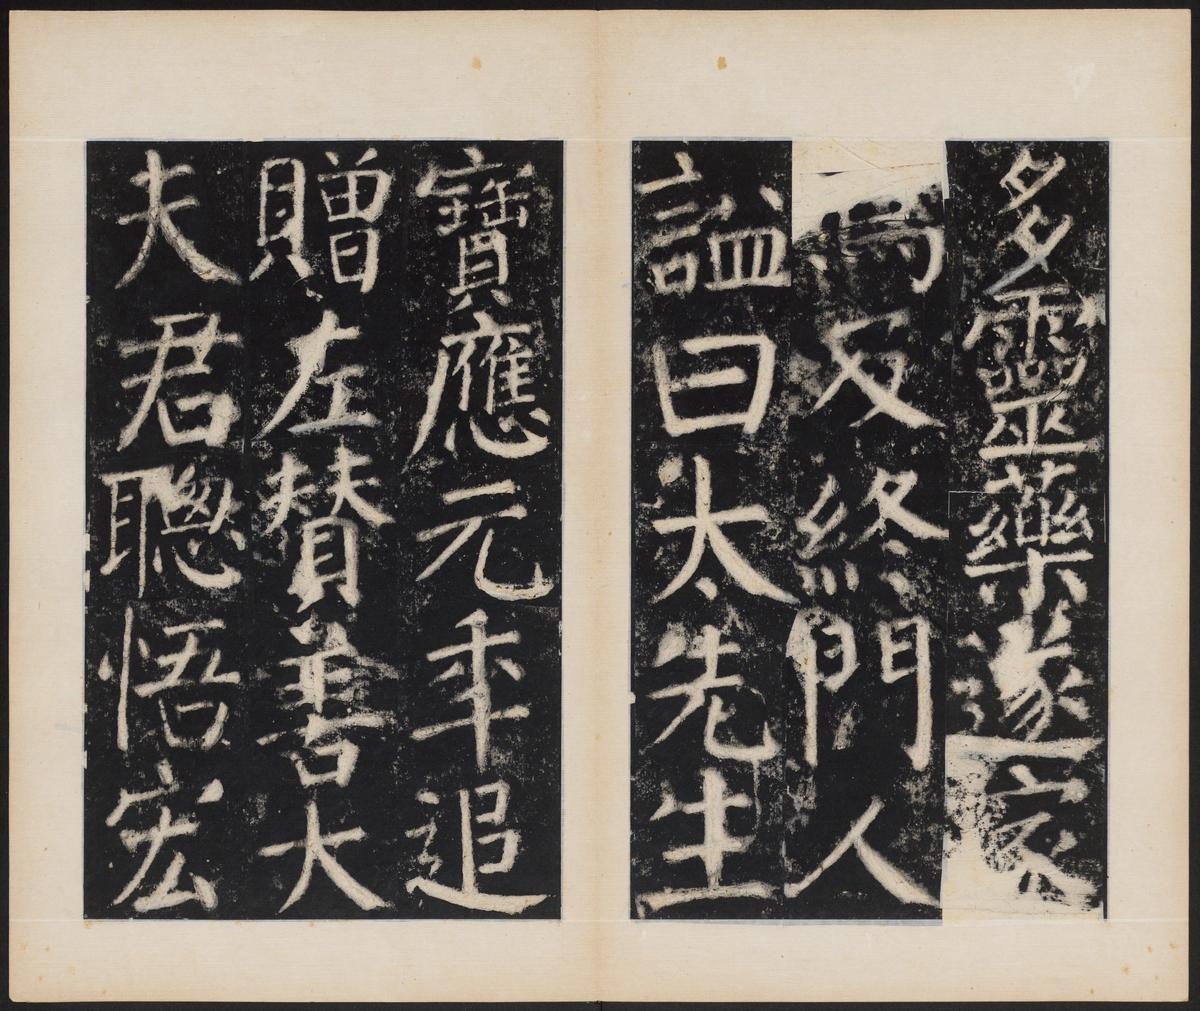 多靈藥遂家
焉及終門人
謚曰太先生
寶應元年追
贈左贊善大
夫君聰悟宏